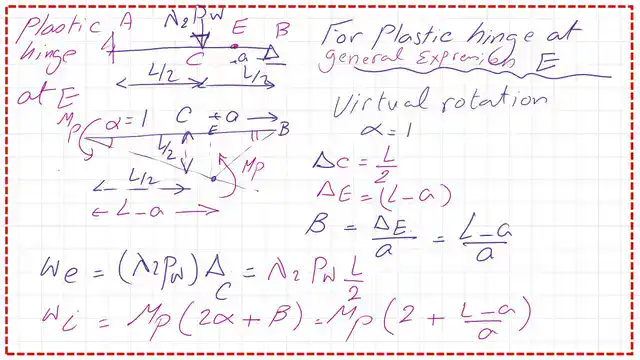 Plastic A λ2 Pw E B
hinge C a
L/2 L/2
at E
Mp α=1 C a
E B
L/2 Mp
L/2
L-a
For Plastic hinge at
general Expression E
Virtual rotation
α=1
Δc = L/2
ΔE = (L-a)
B = ΔE/a = L-a/a
We = (λ2 Pw) Δc = λ2 Pw L/2
Wi = Mp (2α + B) = Mp (2 + L-a/a)